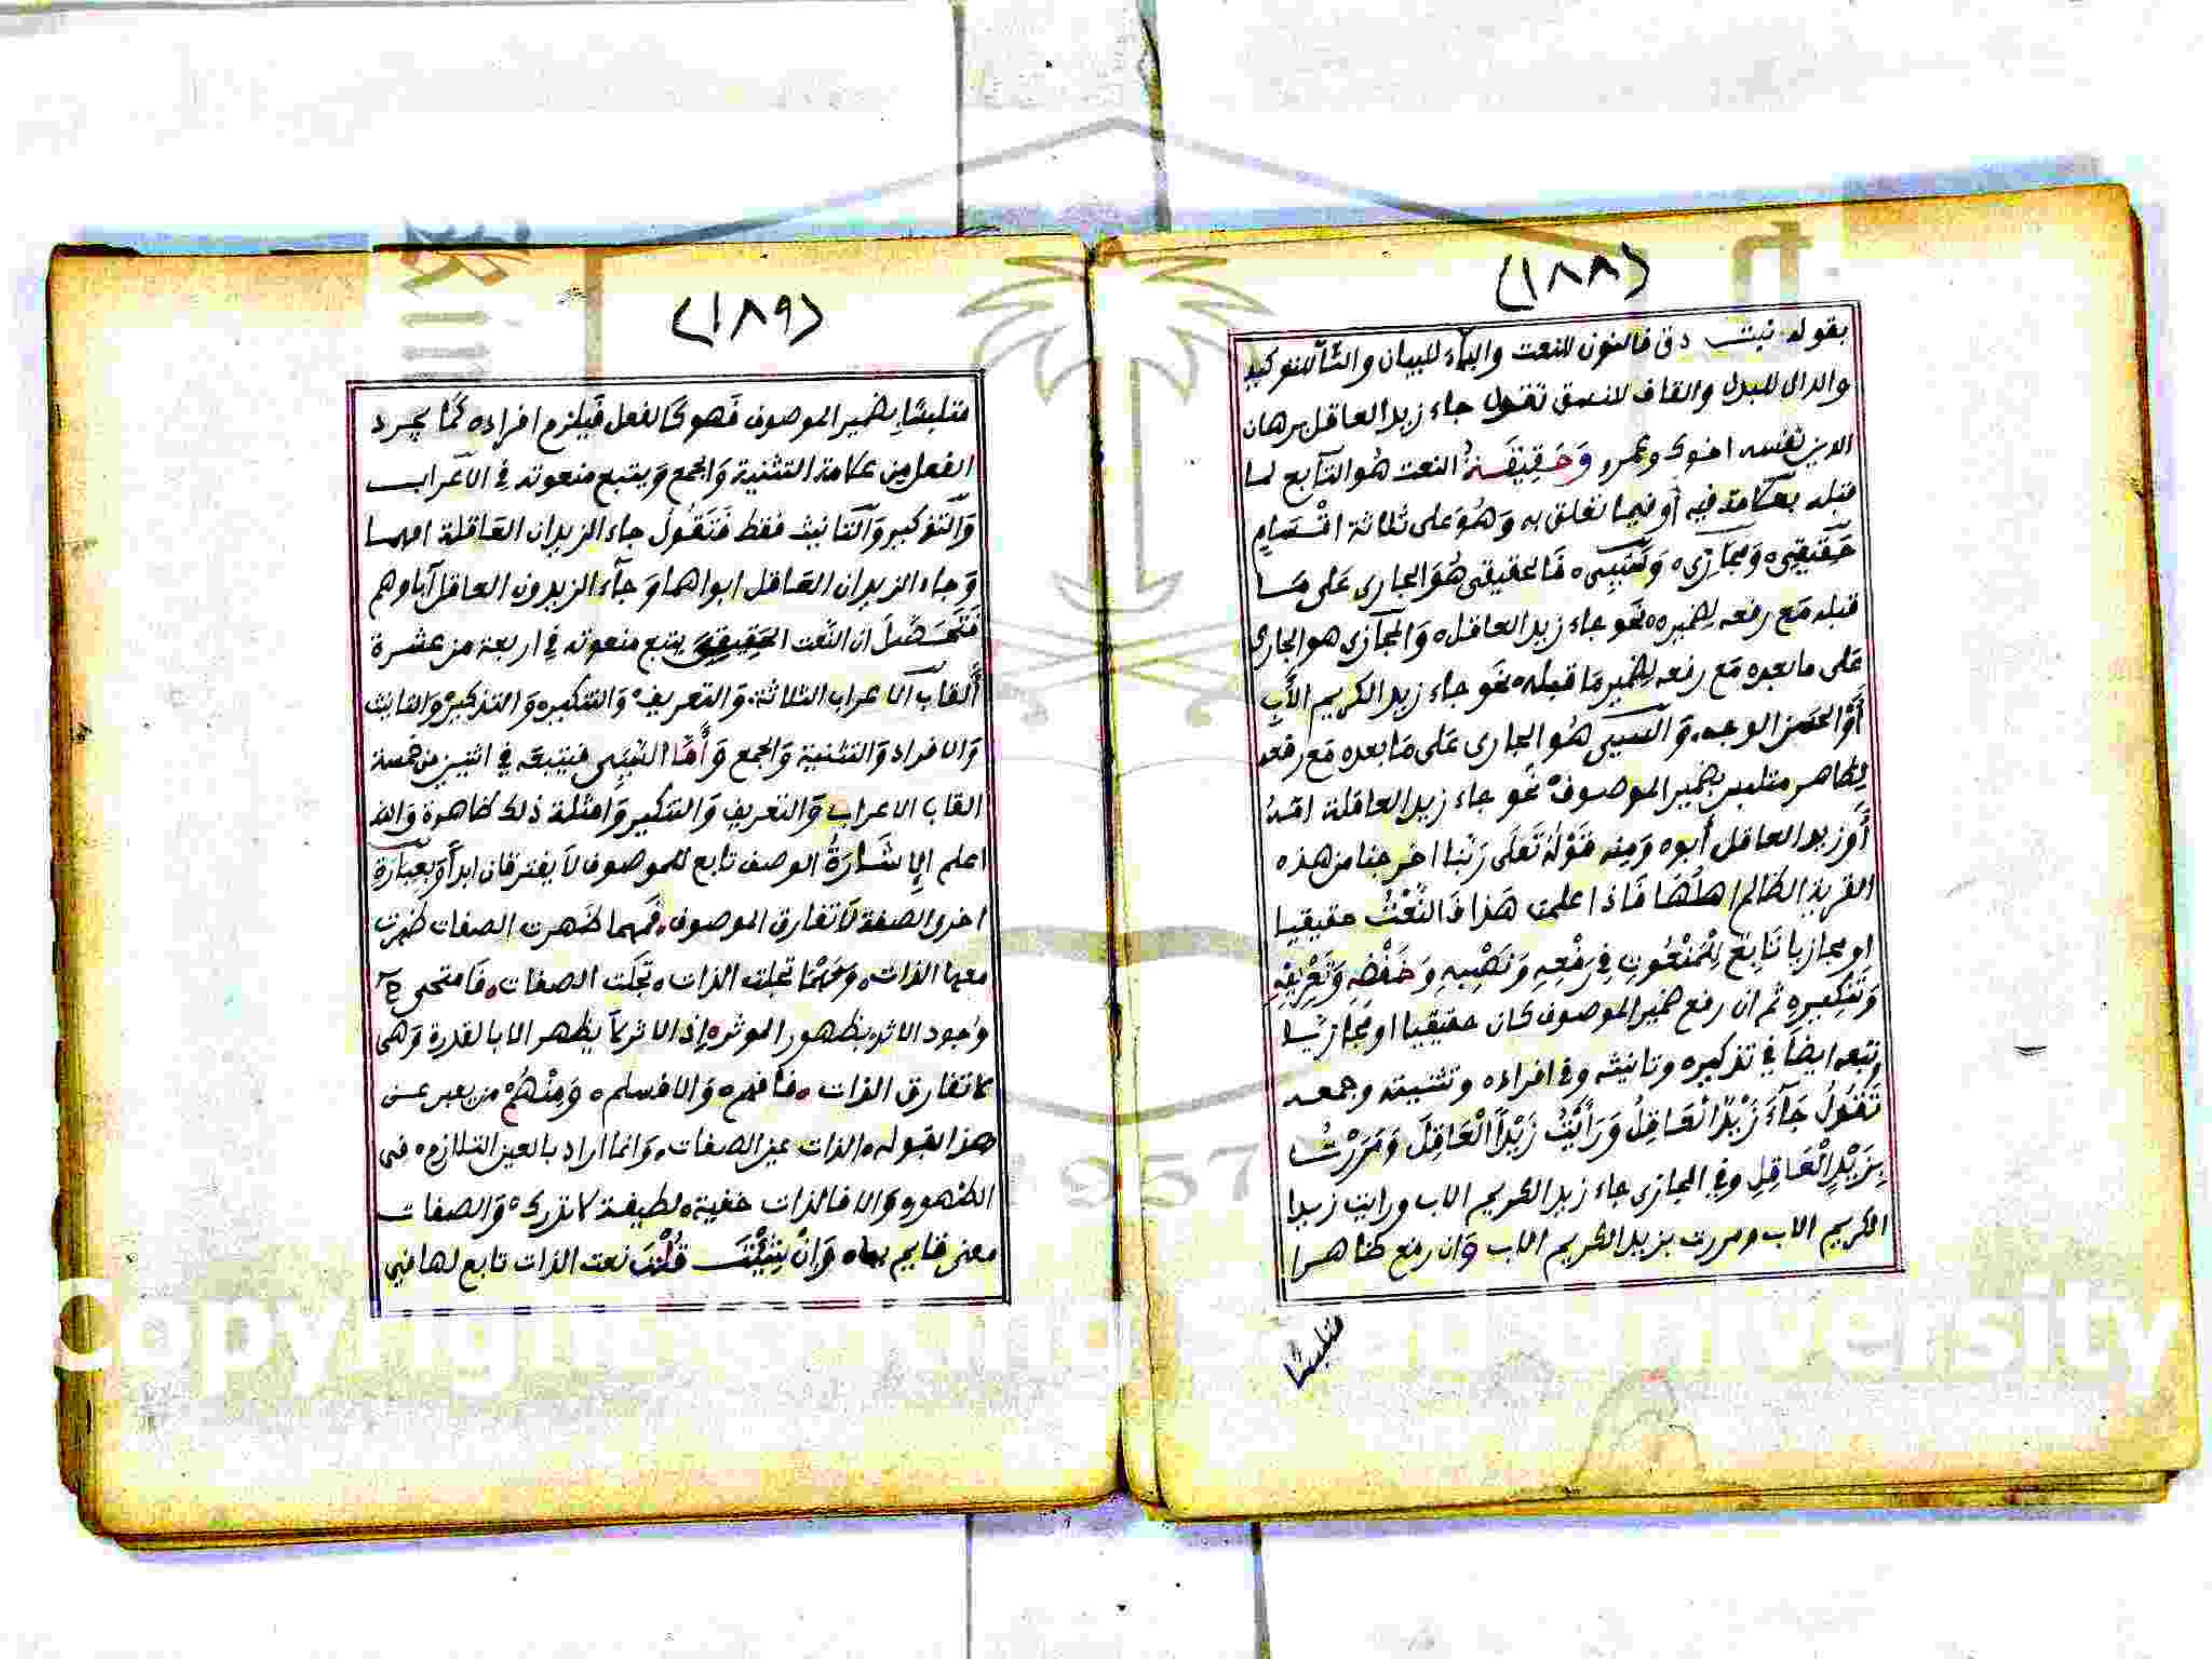 (١٨٨)
بقوله نبت دق فالنون للنعت والباء للبيان والتآ للتوكيد
والدال للبدل والقاف للنسق تقول جاء زيد العاقل برهان
الدين نفسه اخوك وعمرو وَحَقِيقَةُ النعت هُو التآبع لما
قبله بعلامة فيه أو فيما تعلق به وَهُوَ على ثلاثة اقْسَامٍ
حَقِيقِى٥ وَمجَازِى٥ وَسَبَبِى٥ فَالحقيقى هُوَ الجارى عَلى مَا
قبله مَع رفعه لِضميره٥ نحَو جاء زيد العاقل٥ وَالمجَازى هو الجارى
عَلى ما بعده مَع رفعه لِضمير مَا قبله٥ نحَو جاء زيد الكريم الأبِ
أَوْ الحسَن الوجه. وَالسببى هُو الجارى عَلى مَا بعده مَع رفعه
لِظاهر متلبس بِضمير الموصوف٥ نَحو جاء زيد العاقلة امّهُ
أَوْ زيد العاقل أبوه وَمِنه قَوْلهُ تَعَلَى رَبّنا اخرجنا من هذه
القرية الظالم اهلُهَا فَاذا علمت هَذا فَالنَّعْتُ حقيقيا
او مجازيا تَابِعٌ لِلْمَنْعُوتِ فِي رَفْعِهِ وَنَصْبِهِ وَخَفْضِهِ وَتَعْرِيْفِهِ
وَتَنْكِيرِهِ ثم ان رفع ضمير الموصوف كان حقيقيا او مجَازيّا
تبعه ايضاً في تذكيره وتانيثه وفى افراده وتثنيته وجمعه
تَقُولُ جَآءَ زَيْدٌ الْعَاقِلُ وَرَأَيْتُ زَيْدًا الْعَاقِلَ وَمَرَرْتُ
بِزَيْدٍ الْعَاقِلِ وفي المجازى جاء زيد الكريم الاب ورايت زيدا
الكريم الاب ومررت بزيد الكريم الاب وَان رفع ظاهرا
متلبسًا
(١٨٩)
متلبسًا بِضمير الموصوف فَهو كَالفعل فَيلزم افراده كَمَا يجرد
الفعل مِن علامة التثنية وَالجمع وَيتبع منعوته فِي الاعراب
وَالتذكير وَالتانيث فقط فَتَقُولُ جاء الزيدان العَاقلة امهما
وَجاء الزيدان العَاقل ابواهما وَجآء الزيدون العاقل آباوهم
فَتَحَصَّلَ ان النّعت الحَقِيقِىَ يتبع منعوته فِي اربعة من عشرة
أَلقاب الاعراب الثلاثة. وَالتعريف٥ وَالتنكير٥ وَالتذكير٥ وَالتانيث
وَالافراد وَالتثنية وَالجمع وَأَمَّا السَّبَبِى فيتبعَه فِي اثنين من خمسة
القاب الاعراب وَالتعريف وَالتنكير وَامثلة ذلك ظاهرة وَالله
اعلم الإشَارَةُ الوصف تابع للموصوف لاَ يفترقان ابداً وَبعِبَارَةِ
اخرى الصفة لاَ تفارق الموصوف. فَمهما ظَهرت الصفات ظهرت
معها الذات. وَمَهْمَا تجلت الذات. تجَلت الصفات. فَامتحى ح
وجود الاثر٥ بظهور الموثر٥ إذ الاثر لاَ يظهر الا بالقدرة وَهى
لا تفارق الذات. فَافهم٥ وَالا فسلم٥ وَمِنْهُمْ من يعبر عن
هذا بقوله. الذات عين الصفات. وَانما اراد بالعين التلازم٥ فى
الظهور وَالا فالذات خفية٥ لطيفة لا تدرك٥ وَالصفات
معنى قايم بها٥ وَانْ شِئْتَ قُلْتَ نعت الذات تابع لها في